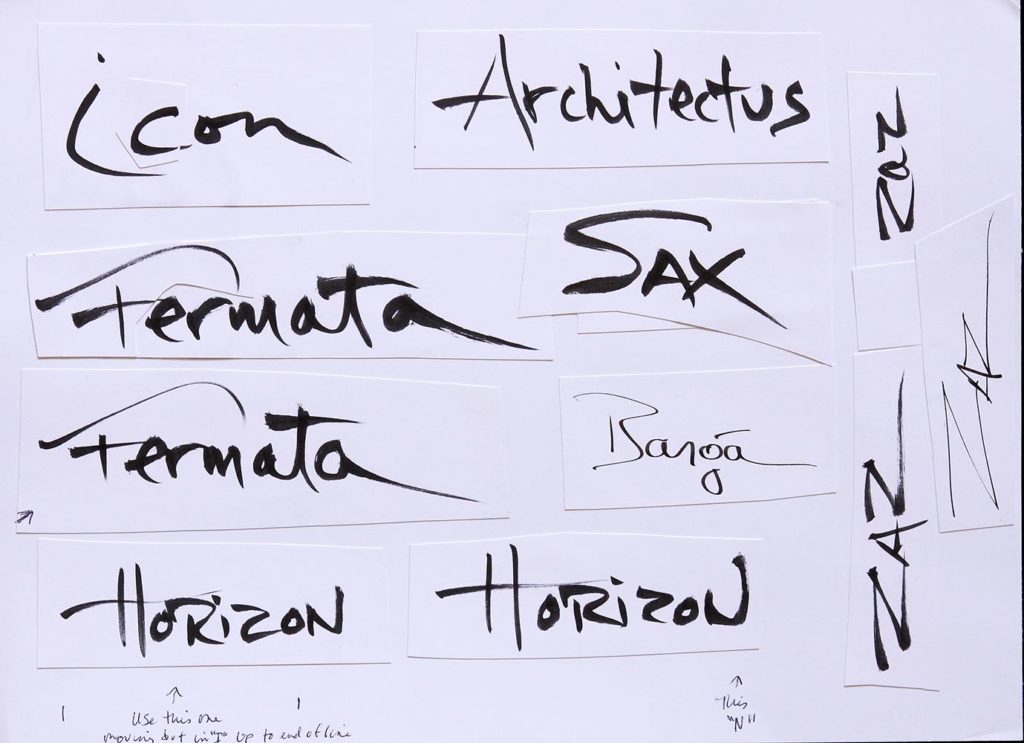 icon
Architectus
Fermata
SAX
Fermata
HORIZON
HORIZON
zaz
ZAZ
ZAZ
Use this one
moving dot in "I" up to end of line
This
"N"